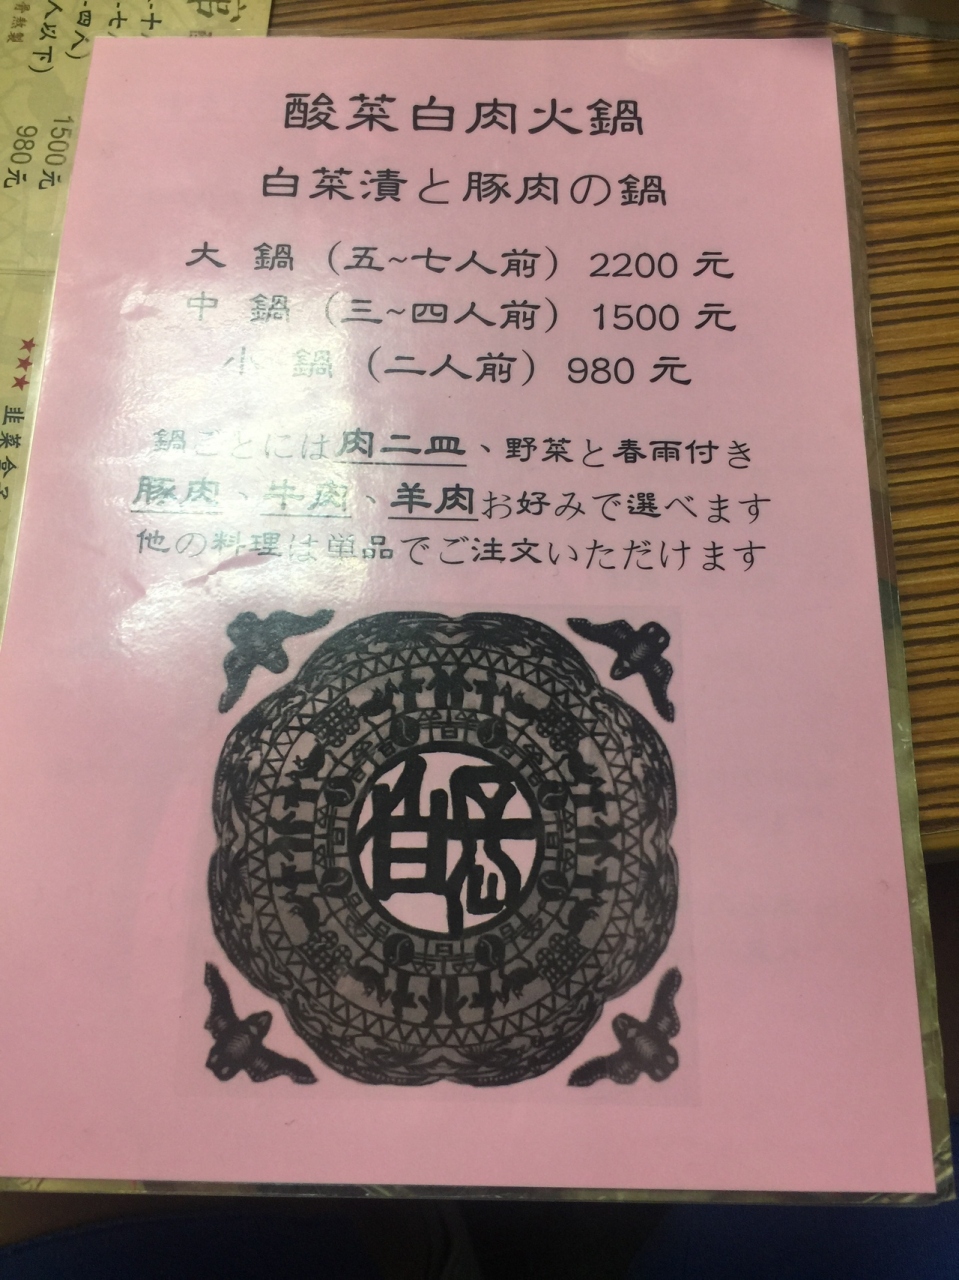 酸菜白肉火鍋
白菜漬と豚肉の鍋
大 鍋 （五~七人前） 2200 元
中 鍋 （三~四人前） 1500 元
小 鍋 （二人前） 980 元
鍋ごとには肉二皿、野菜と春雨付き
豚肉、牛肉、羊肉お好みで選べます
他の料理は単品でご注文いただけます
人以下）
1500元
980元
韭菜盒子